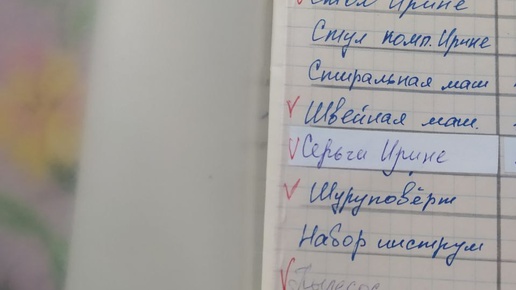 Стол Ирине
Стул комп. Ирине
Стиральная маш
Швейная маш.
Серьги Ирине
Шуруповёрт
Набор инструм
Пылесос